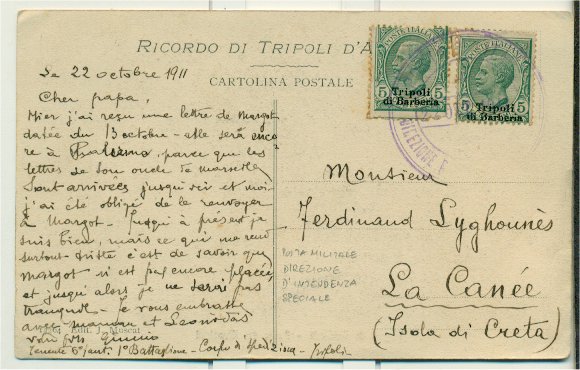 RICORDO DI TRIPOLI D'A
CARTOLINA POSTALE
Le 22 octobre 1911
Cher papa,
Hier j'ai reçu une lettre de Margot
datée du 13 octobre - elle sera enco
re à Palermo, parce que les
lettres de son oncle de Marseille
sont arrivées jusqu'ici et moi
j'ai été obligé de le renvoyer
à Margot. Jusqu'à présent je
suis bien, mais ce qui me rend
surtout triste c'est de savoir que
Margot n'est pas encore placée
et jusqu'alors je ne serai pas
tranquille - Je vous embrasse
avec maman et Leonidas
votre fils
Edit. J. Muscat
Tenente 6° fant. 1° Battaglione - Corpo di spedizione - Tripoli
POSTE ITALIANE
5 5
Tripoli
di Barberia
POSTE ITALIANE
5 5
Tripoli
di Barberia
DIREZIONE
Monsieur
Ferdinand Lyghounès
POSTA MILITALE
DIREZIONE
D'INTENDENZA
SPECIALE
La Canée
(Isola di Creta)